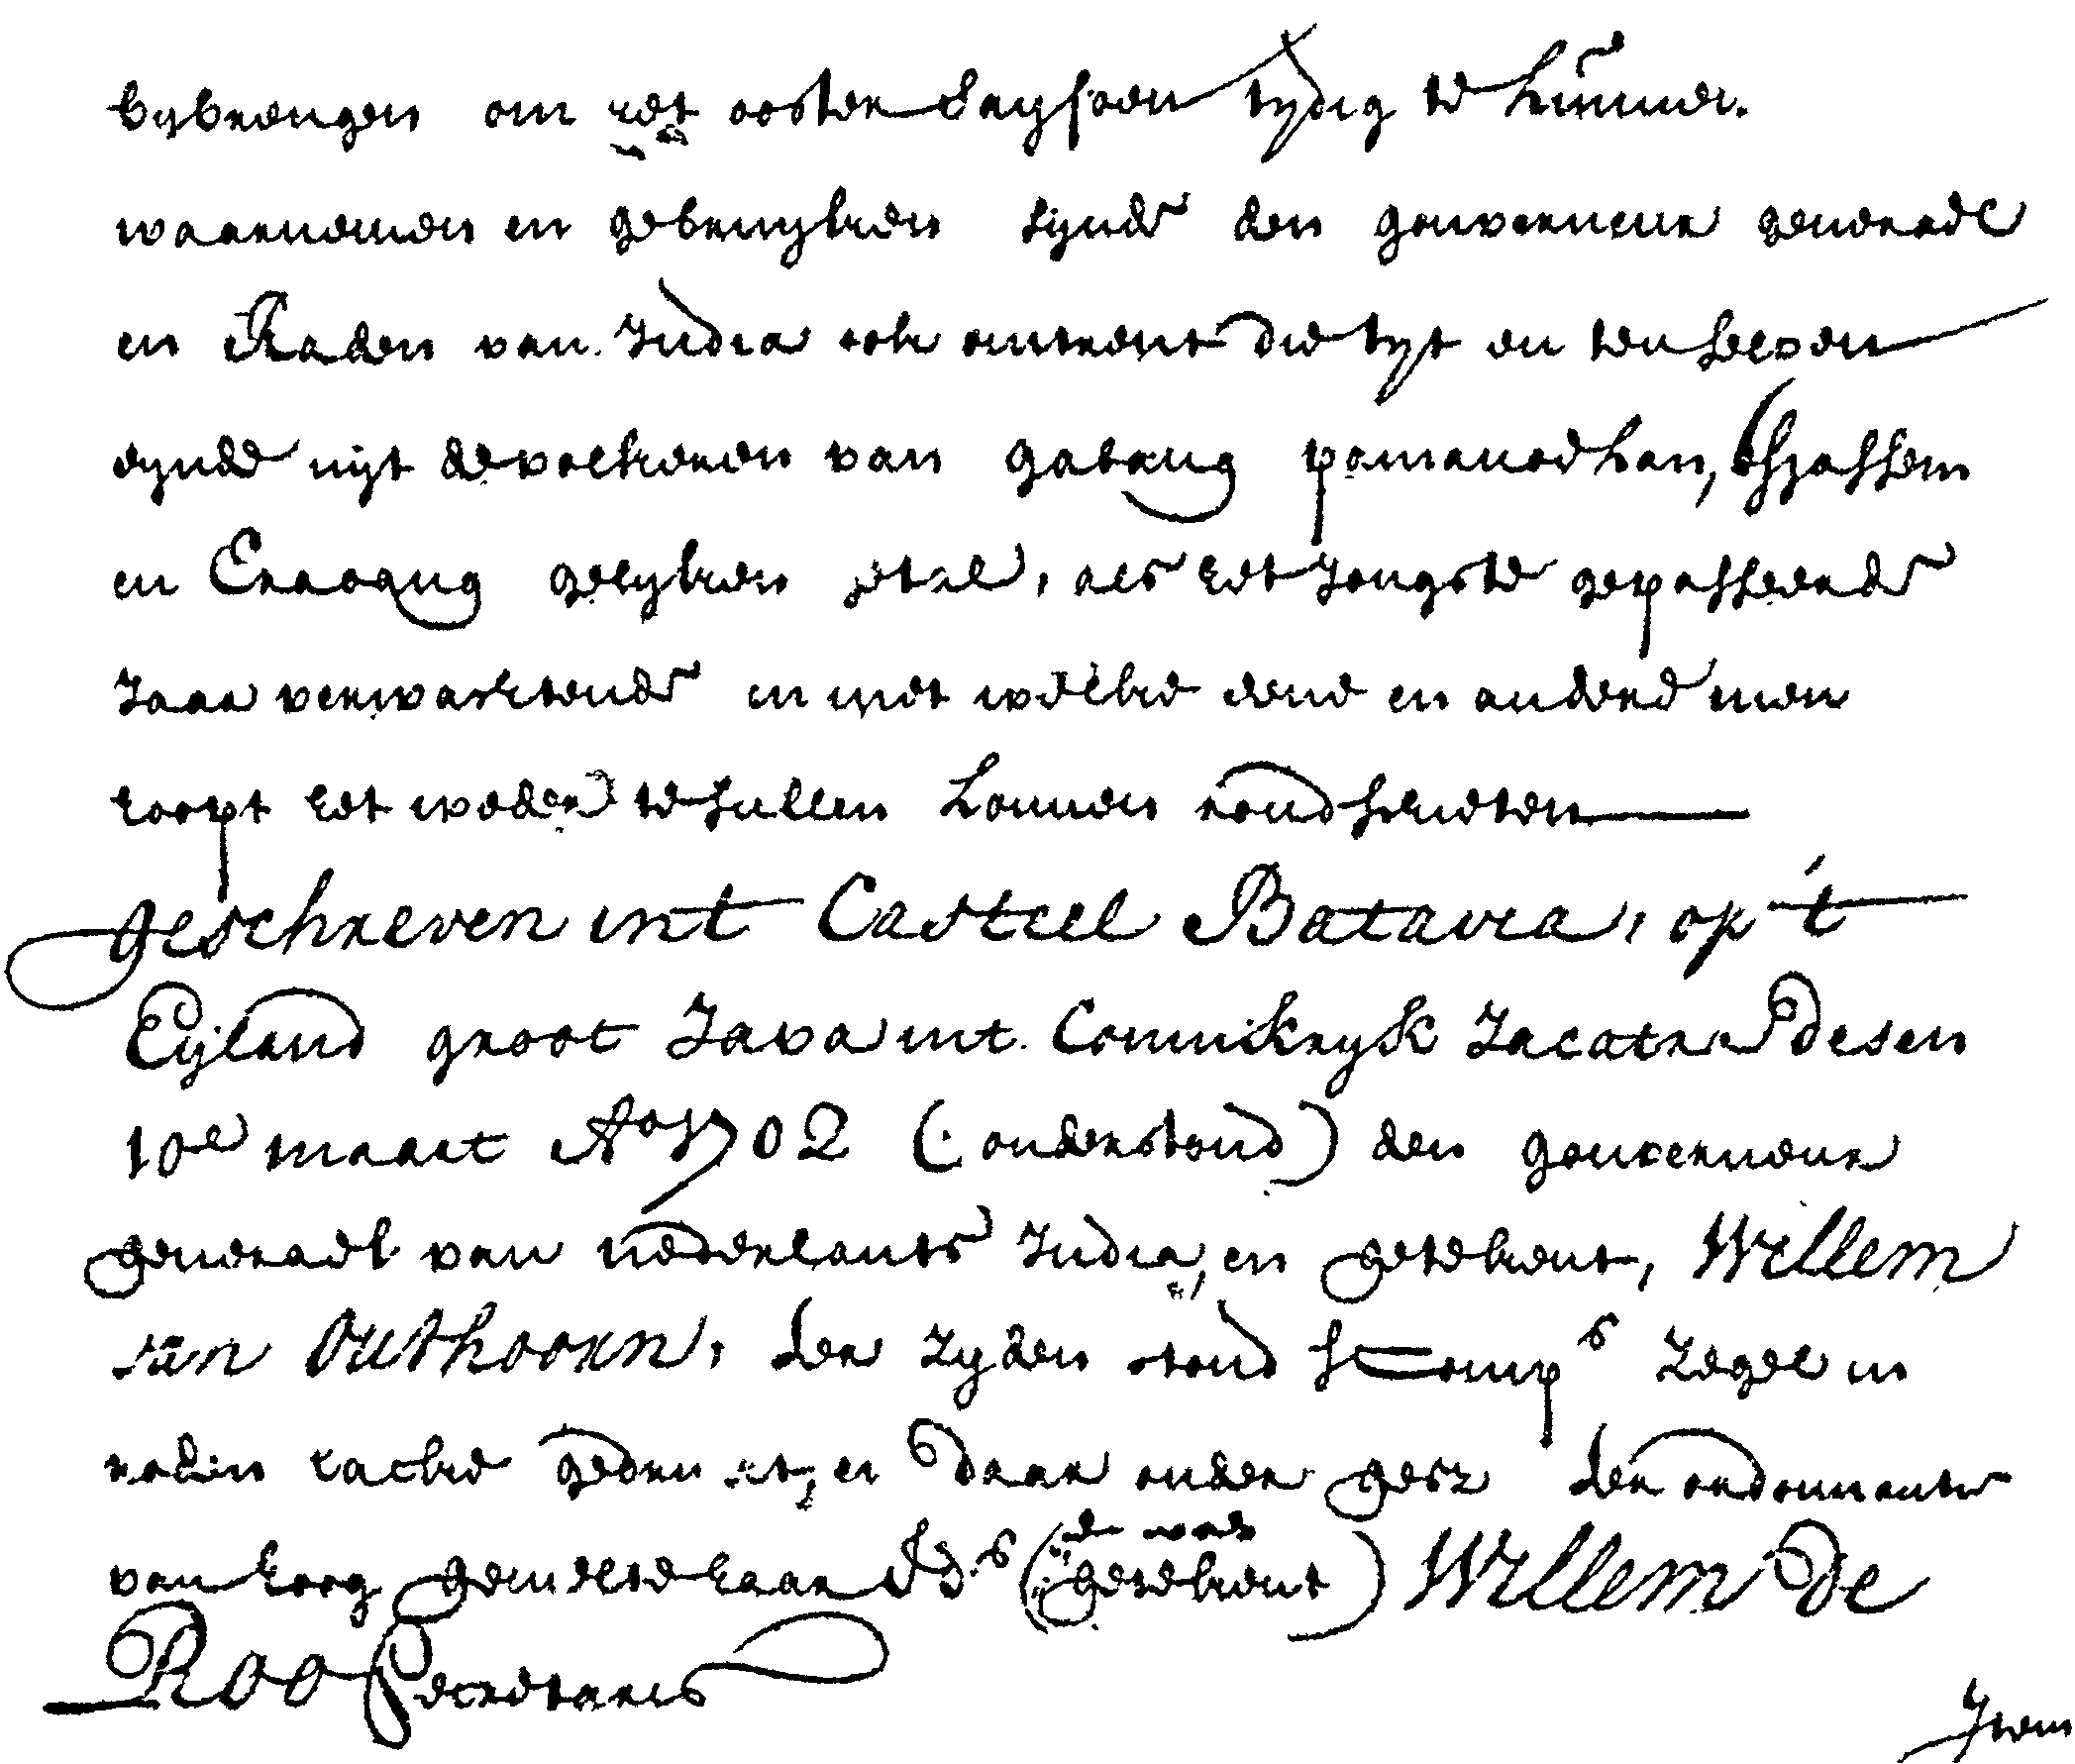 bybrengen om het ooster saysoen tydig te kunnen
waarnemen en gebruyken synde den gouverneur generael
en Raden van India ook omtrent die tyt en ten selven
eynde uijt de volkeren van gabang pamanoekan, Tsjassem
en Craoang gelyken getal, als het Jongste gepasseerde
Jaar verwachtende en met welke eene en andere men
hoopt het werk te sullen konnen rondschieten
geschreven int Casteel Batavia, op 't
Eyland groot Java int Connikryk Jacatra desen
10e maart Ao 1702 (: onderstond) den gouverneur
generael van nederlants India, en getekent, Willem
van Outhoorn, ter zyden stond s' Comps Zegel in
roden lacke gedrukt, en daar onder gesz ter ordonnantie
van hoog gemelte haar Eds (: en was getekent) Willem De
Roo Secretaris
Item